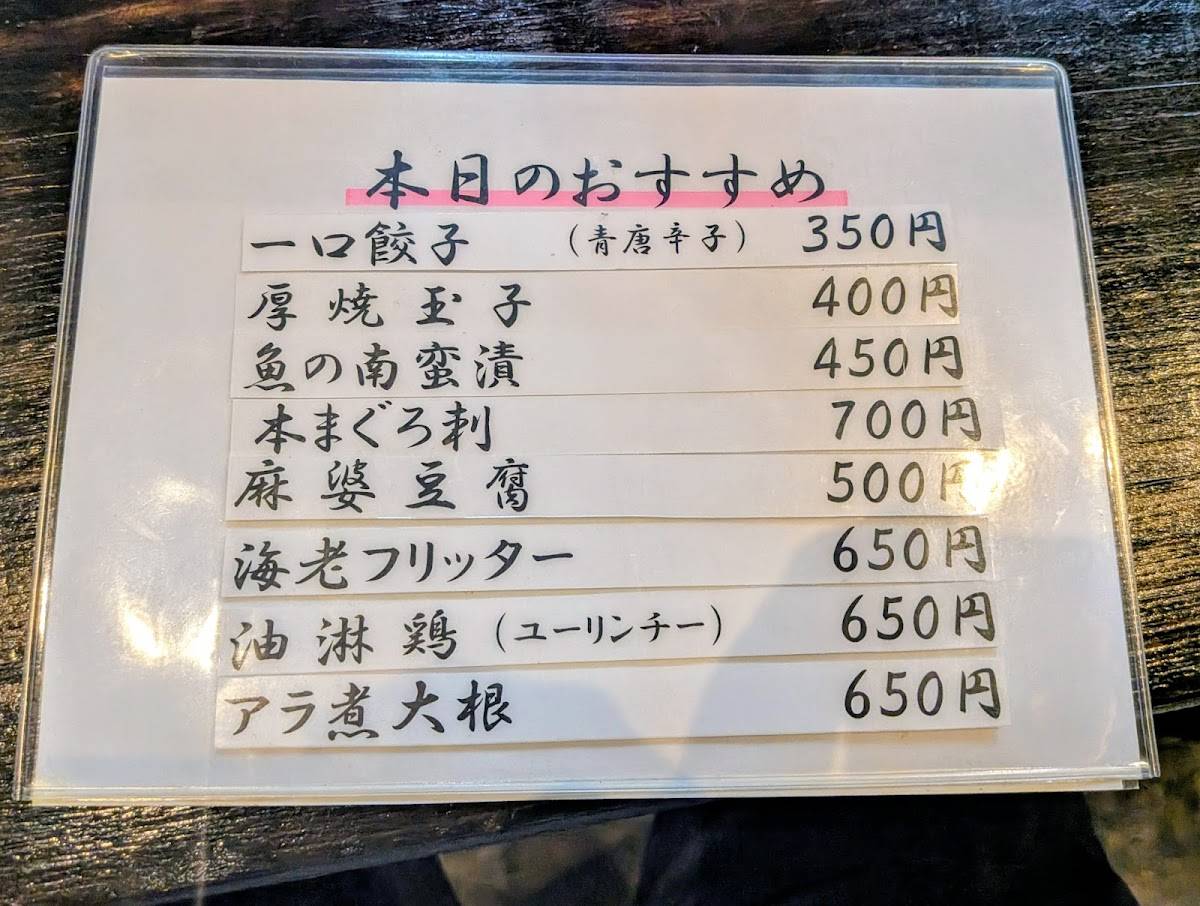 本日のおすすめ
一口餃子 (青唐辛子) 350円
厚焼玉子 400円
魚の南蛮漬 450円
本まぐろ刺 700円
麻婆豆腐 500円
海老フリッター 650円
油淋鶏 (ユーリンチー) 650円
アラ煮大根 650円